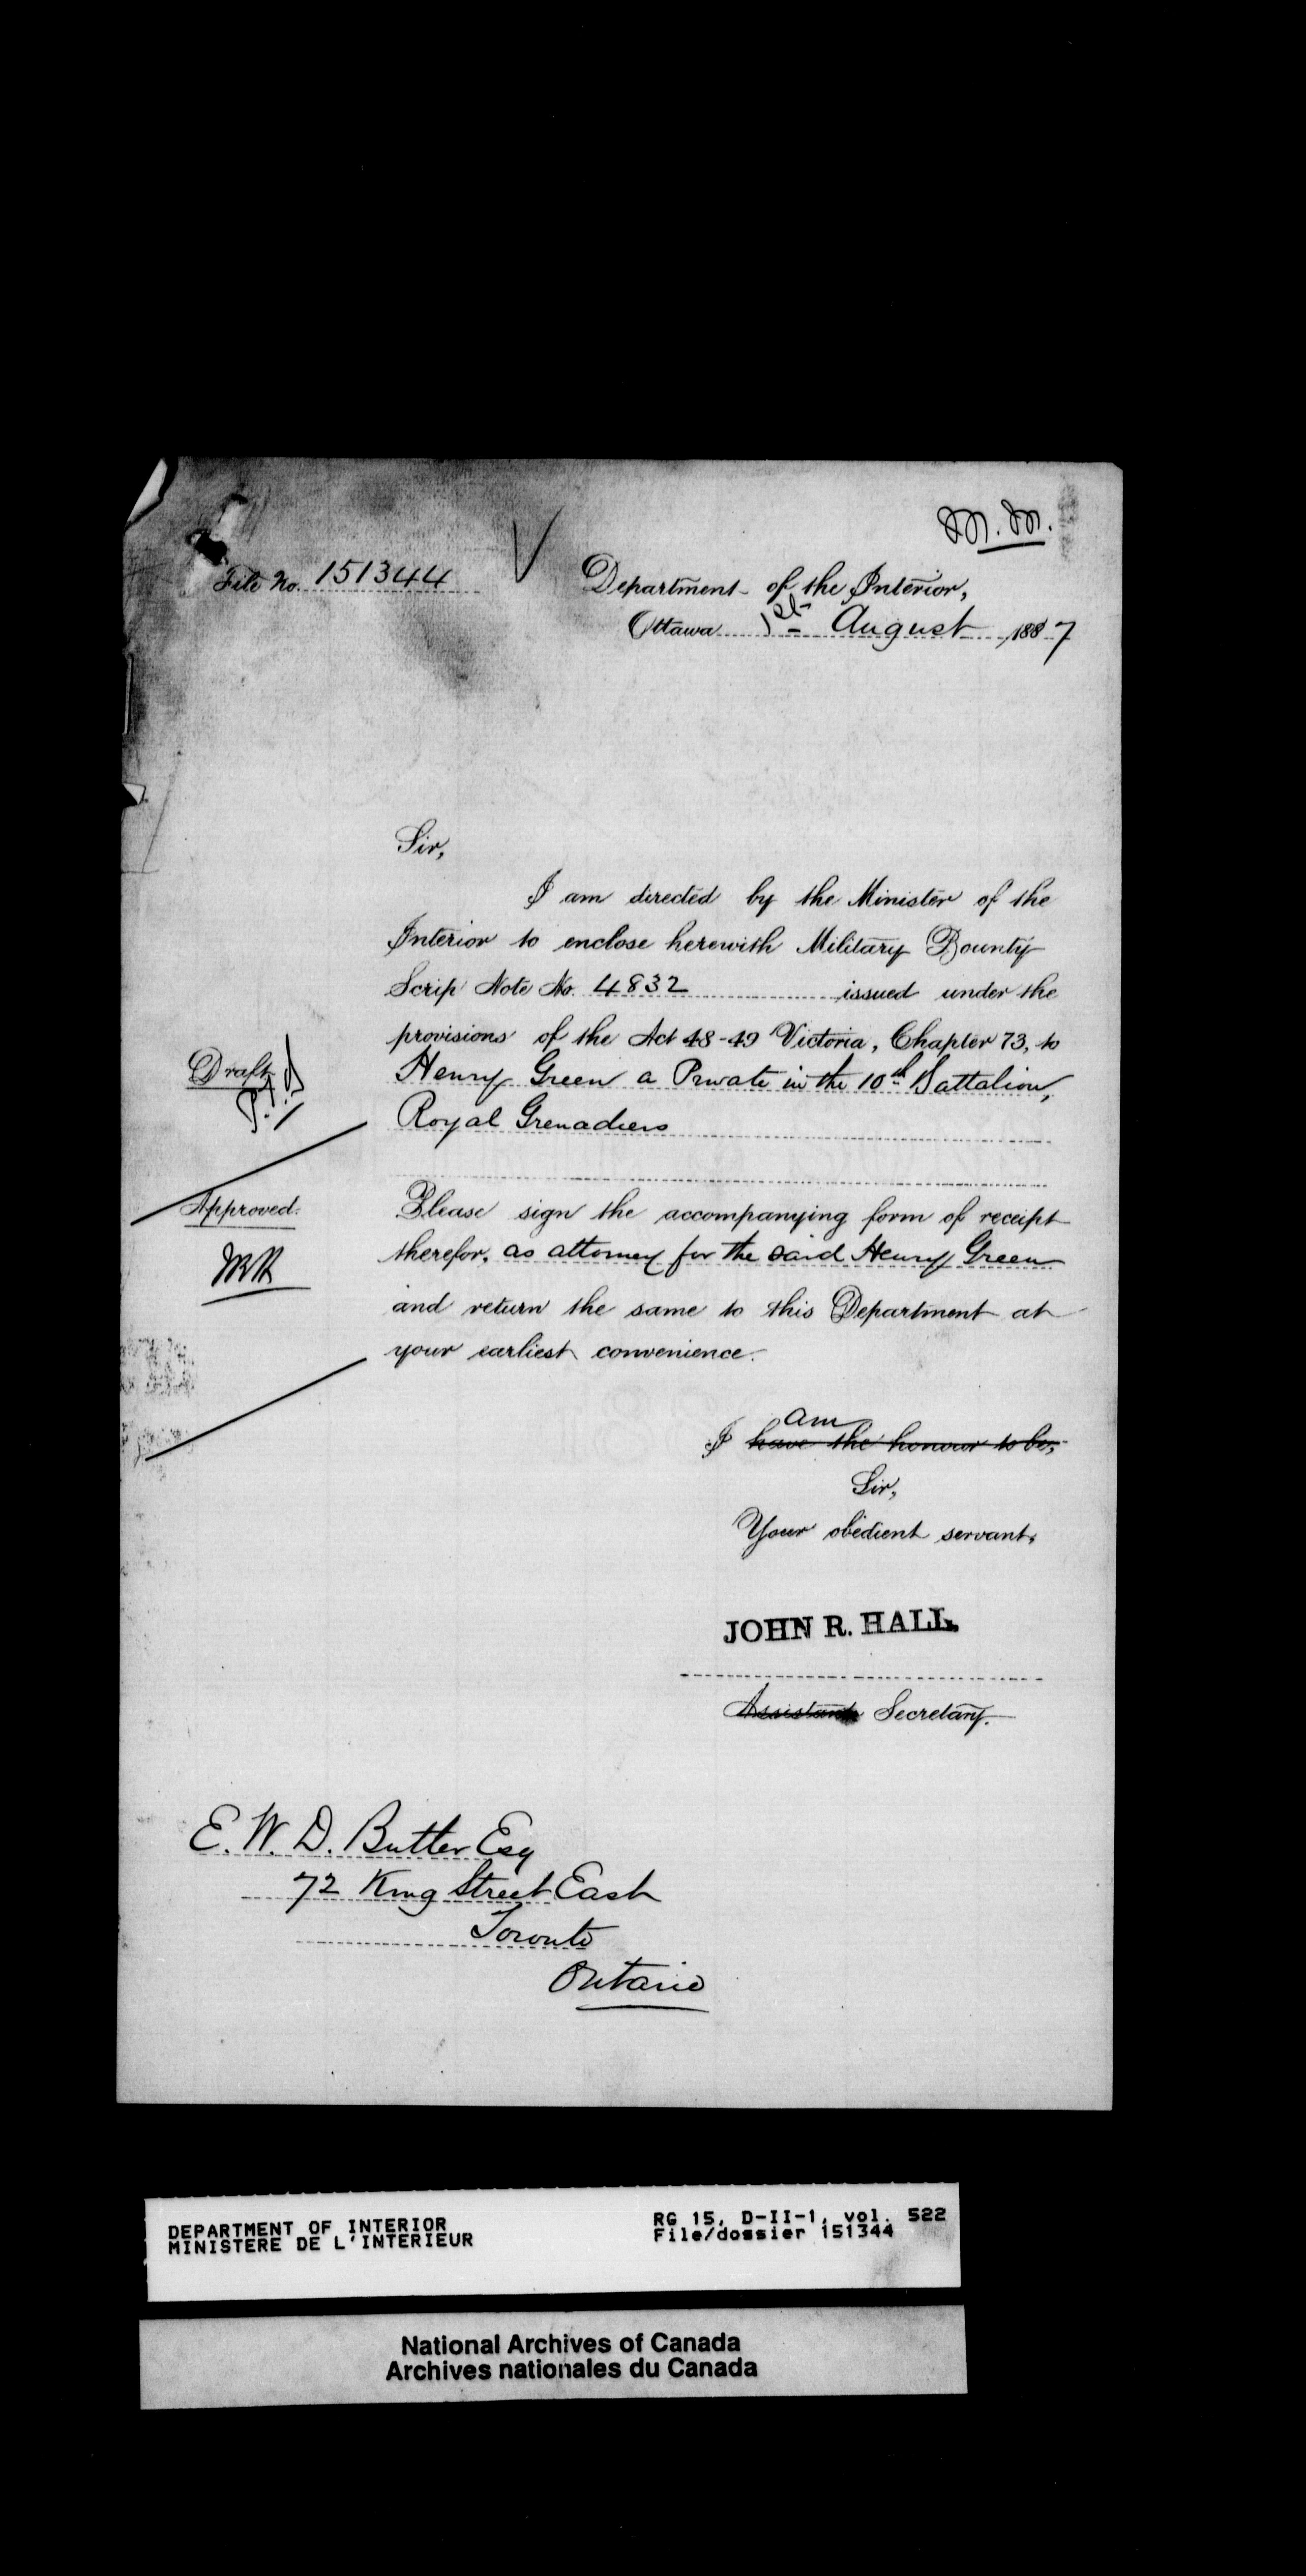 M. M.
File No. 151344
Department of the Interior,
Ottawa 1st August 1887
Sir,
I am directed by the Minister of the
Interior to enclose herewith Military Bounty
Scrip Note No. 4832 issued under the
provisions of the Act 48-49 Victoria, Chapter 73, to
Draft
Henry Green a Private in the 10th Battalion,
Royal Grenadiers
Approved.
Please sign the accompanying form of receipt
therefor, as attorney for the said Henry Green
and return the same to this Department at
your earliest convenience.
am
I have the honour to be,
Sir,
Your obedient servant,
JOHN R. HALL.
Assistant Secretary.
E. W. D. Butler Esq
72 King Street East
Toronto
Ontario
DEPARTMENT OF INTERIOR
MINISTERE DE L'INTERIEUR
RG 15, D-II-1, vol. 522
File/dossier 151344
National Archives of Canada
Archives nationales du Canada